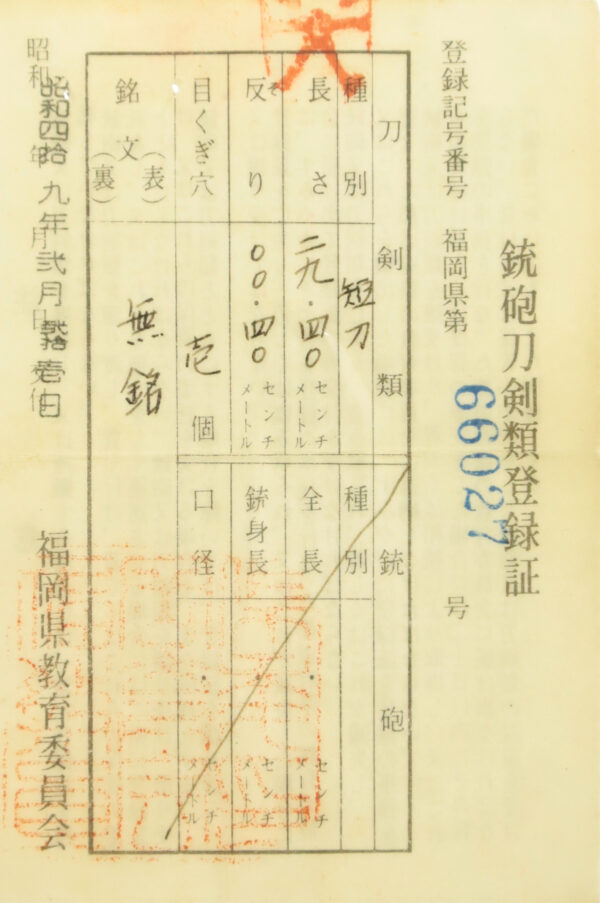 銃砲刀剣類登録証
登録記号番号 福岡県第 66027 号
刀剣類
種別 短刀
長さ 二九.四〇 センチメートル
反り そ 〇〇.四〇 センチメートル
目くぎ穴 壱個
銘文 (表) (裏) 無銘
銃砲
種別
全長 . センチメートル
銃身長 . センチメートル
口径 . センチメートル
昭和 年 月 日
昭和四拾九年弐月弐拾壱日
福岡県教育委員会